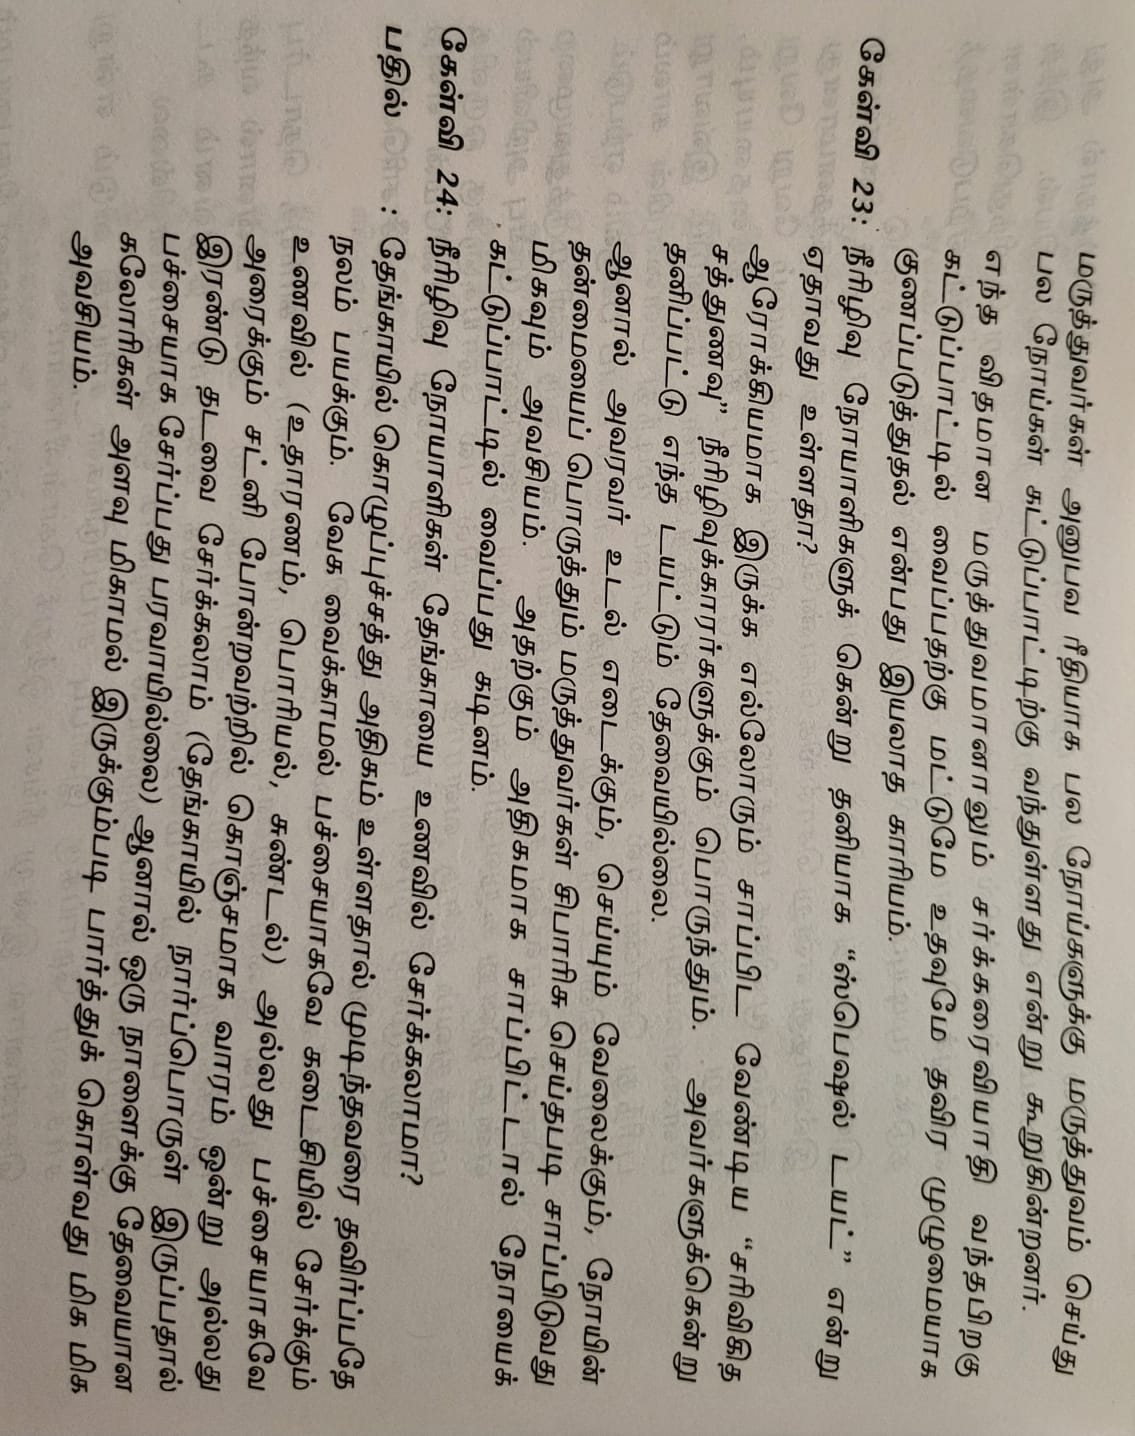 மருத்துவர்கள் அனுபவ ரீதியாக பல நோய்களுக்கு மருத்துவம் செய்து
பல நோய்கள் கட்டுப்பாட்டிற்கு வந்துள்ளது என்று கூறுகின்றனர்.
எந்த விதமான மருத்துவமானாலும் சர்க்கரைவியாதி வந்தபிறகு
கட்டுப்பாட்டில் வைப்பதற்கு மட்டுமே உதவுமே தவிர முழுமையாக
குணப்படுத்துதல் என்பது இயலாத காரியம்.
கேள்வி 23: நீரிழிவு நோயாளிகளுக் கென்று தனியாக “ஸ்பெஷல் டயட்” என்று
ஏதாவது உள்ளதா?
ஆரோக்கியமாக இருக்க எல்லோரும் சாப்பிட வேண்டிய “சரிவிகித
சத்துணவு” நீரிழிவுக்காரர்களுக்கும் பொருந்தும். அவர்களுக்கென்று
தனிப்பட்டு எந்த டயட்டும் தேவையில்லை.
ஆனால் அவரவர் உடல் எடைக்கும், செய்யும் வேலைக்கும், நோயின்
தன்மையைப் பொருத்தும் மருத்துவர்கள் சிபாரிசு செய்தபடி சாப்பிடுவது
மிகவும் அவசியம். அதற்கும் அதிகமாக சாப்பிட்டால் நோயைக்
கட்டுப்பாட்டில் வைப்பது கடினம்.
கேள்வி 24: நீரிழிவு நோயாளிகள் தேங்காயை உணவில் சேர்க்கலாமா?
பதில் : தேங்காயில் கொழுப்புச்சத்து அதிகம் உள்ளதால் முடிந்தவரை தவிர்ப்பதே
நலம் பயக்கும். வேக வைக்காமல் பச்சையாகவே கடைசியில் சேர்க்கும்
உணவில் (உதாரணம், பொரியல், சுண்டல்) அல்லது பச்சையாகவே
அரைக்கும் சட்னி போன்றவற்றில் கொஞ்சமாக வாரம் ஒன்று அல்லது
இரண்டு தடவை சேர்க்கலாம் (தேங்காயில் நார்ப்பொருள் இருப்பதால்
பச்சையாக சேர்ப்பது பரவாயில்லை) ஆனால் ஒரு நாளைக்கு தேவையான
கலோரிகள் அளவு மிகாமல் இருக்கும்படி பார்த்துக் கொள்வது மிக மிக
அவசியம்.